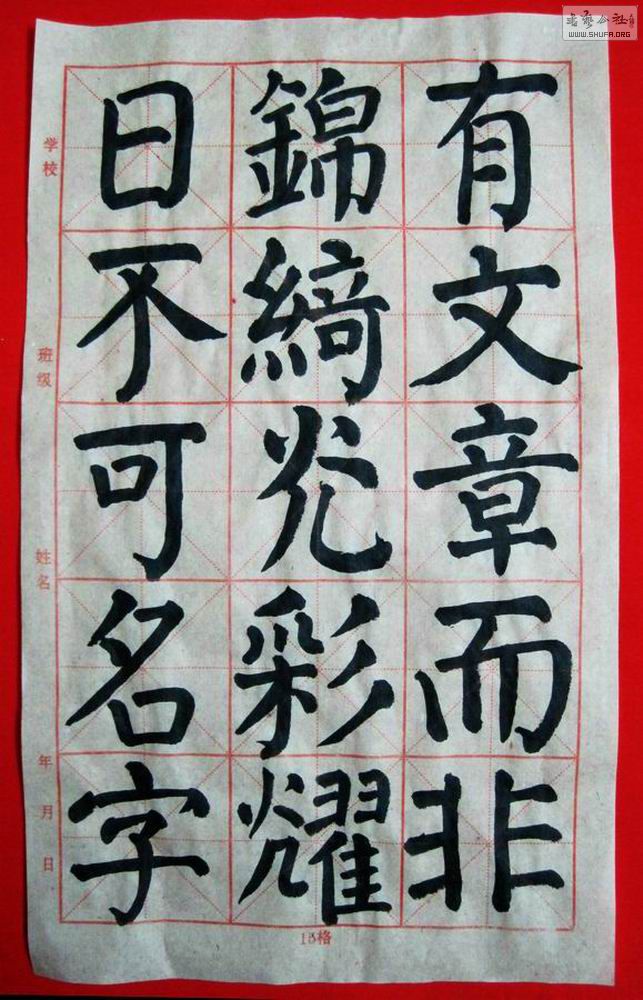 有文章而非
錦綺光彩耀
日不可名字
学校
班级
姓名
年月日
15格
WWW.SHUFA.ORG